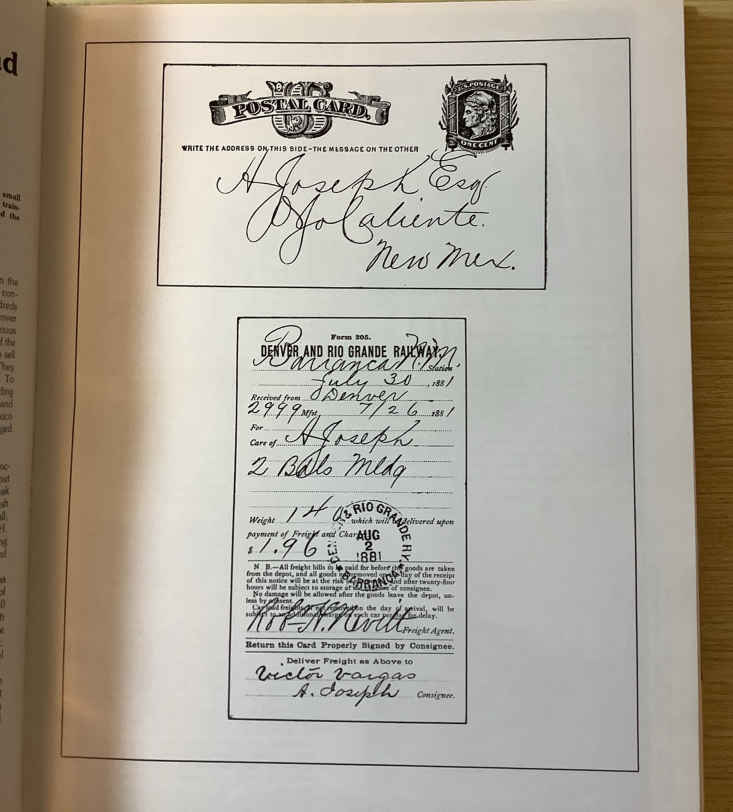 d
small
train-
d the
n the
con-
dreds
nver
d the
sell
They
To
ding
and
U.S. POSTAGE
US
POSTAL CARD.
ONE CENT
WRITE THE ADDRESS ON THIS SIDE-THE MESSAGE ON THE OTHER
A Joseph Esq
Ojo Caliente.
New Mex.
Form 205.
DENVER AND RIO GRANDE RAILWAY.
Barranca N.M. Station
July 30, 1881
Received from Denver
2999 Mfst 7/26 1881
For
Care of A Joseph
2 Bdls Mldg
Weight 140 which will be delivered upon
payment of Freight and Char
$1.96
& RIO GRANDE RY.
AUG
2
1881
BARRANCA
N B.—All freight bills to be paid for before the goods are taken
from the depot, and all goods not removed on the day of the receipt
of this notice will be at the risk and after twenty-four
hours will be subject to storage at of consignee.
No damage will be allowed after the goods leave the depot, un-
less by consent.
Car load freights if not removed on the day of arrival, will be
subject to an additional charge on each car per day for delay.
Robt H. Nevitt Freight Agent.
Return this Card Properly Signed by Consignee.
Deliver Freight as Above to
Victor Vargas
A. Joseph Consignee.